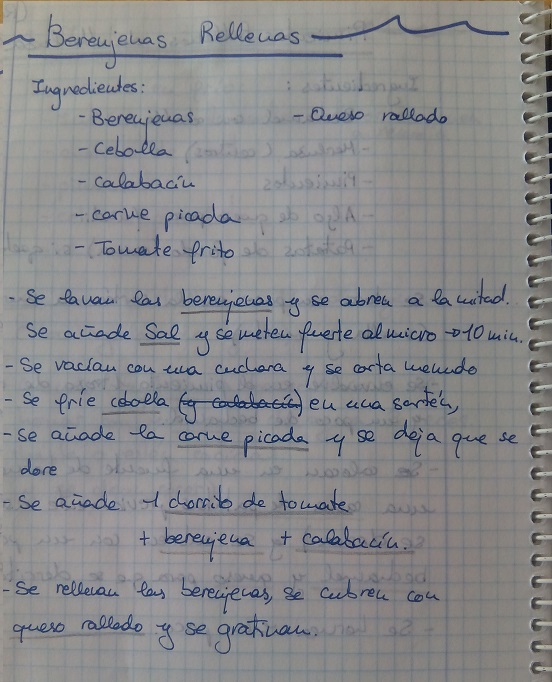 Berenjenas Rellenas
Ingredientes:
- Berenjenas - Queso rallado
- Cebolla
- Calabacín
- carne picada
- Tomate frito
- Se lavan las berenjenas y se abren a la mitad.
Se añade Sal y se meten fuerte al micro → 10 min.
- Se vacían con una cuchara y se corta menudo
- Se fríe cebolla (y calabacín) en una sartén,
- Se añade la carne picada y se deja que se
dore
- Se añade 1 chorrito de tomate
+ berenjena + calabacín.
- Se rellenan las berenjenas, se cubren con
queso rallado y se gratinan.